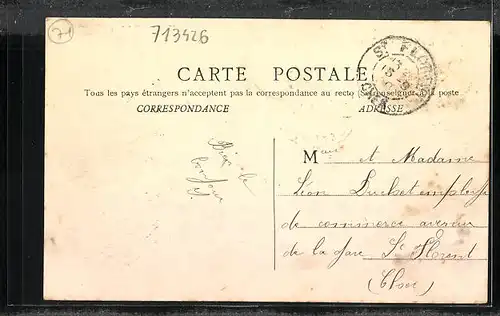 71
713426
CARTE POSTALE
Tous les pays étrangers n'acceptent pas la correspondance au recto (Se renseigner à la poste
CORRESPONDANCE
ADRESSE
ST FLO
Bien le
bonjour
M et Madame
Léon Duchet employé
de commerce avenue
de la gare St Florent
(Cher)